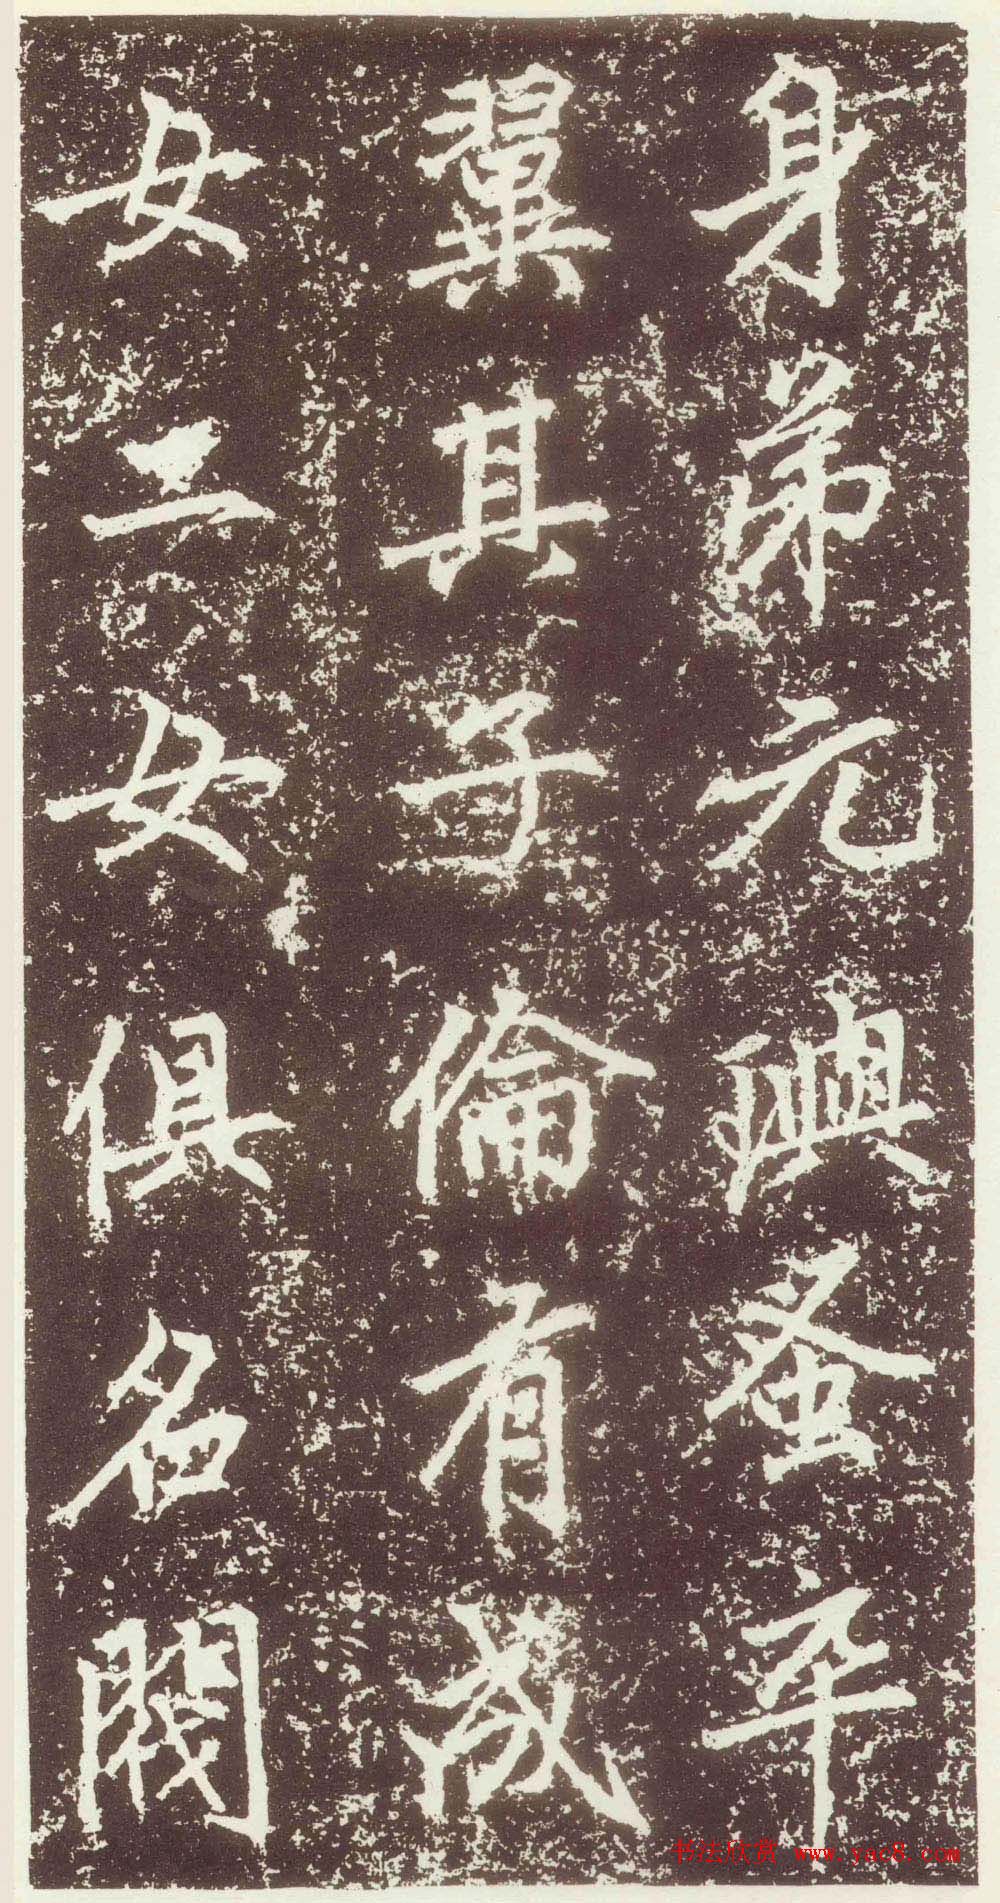 身弟元興蚤卒
翼其子倫有成
女二女俱名閥
书法欣赏 www.yac8.com